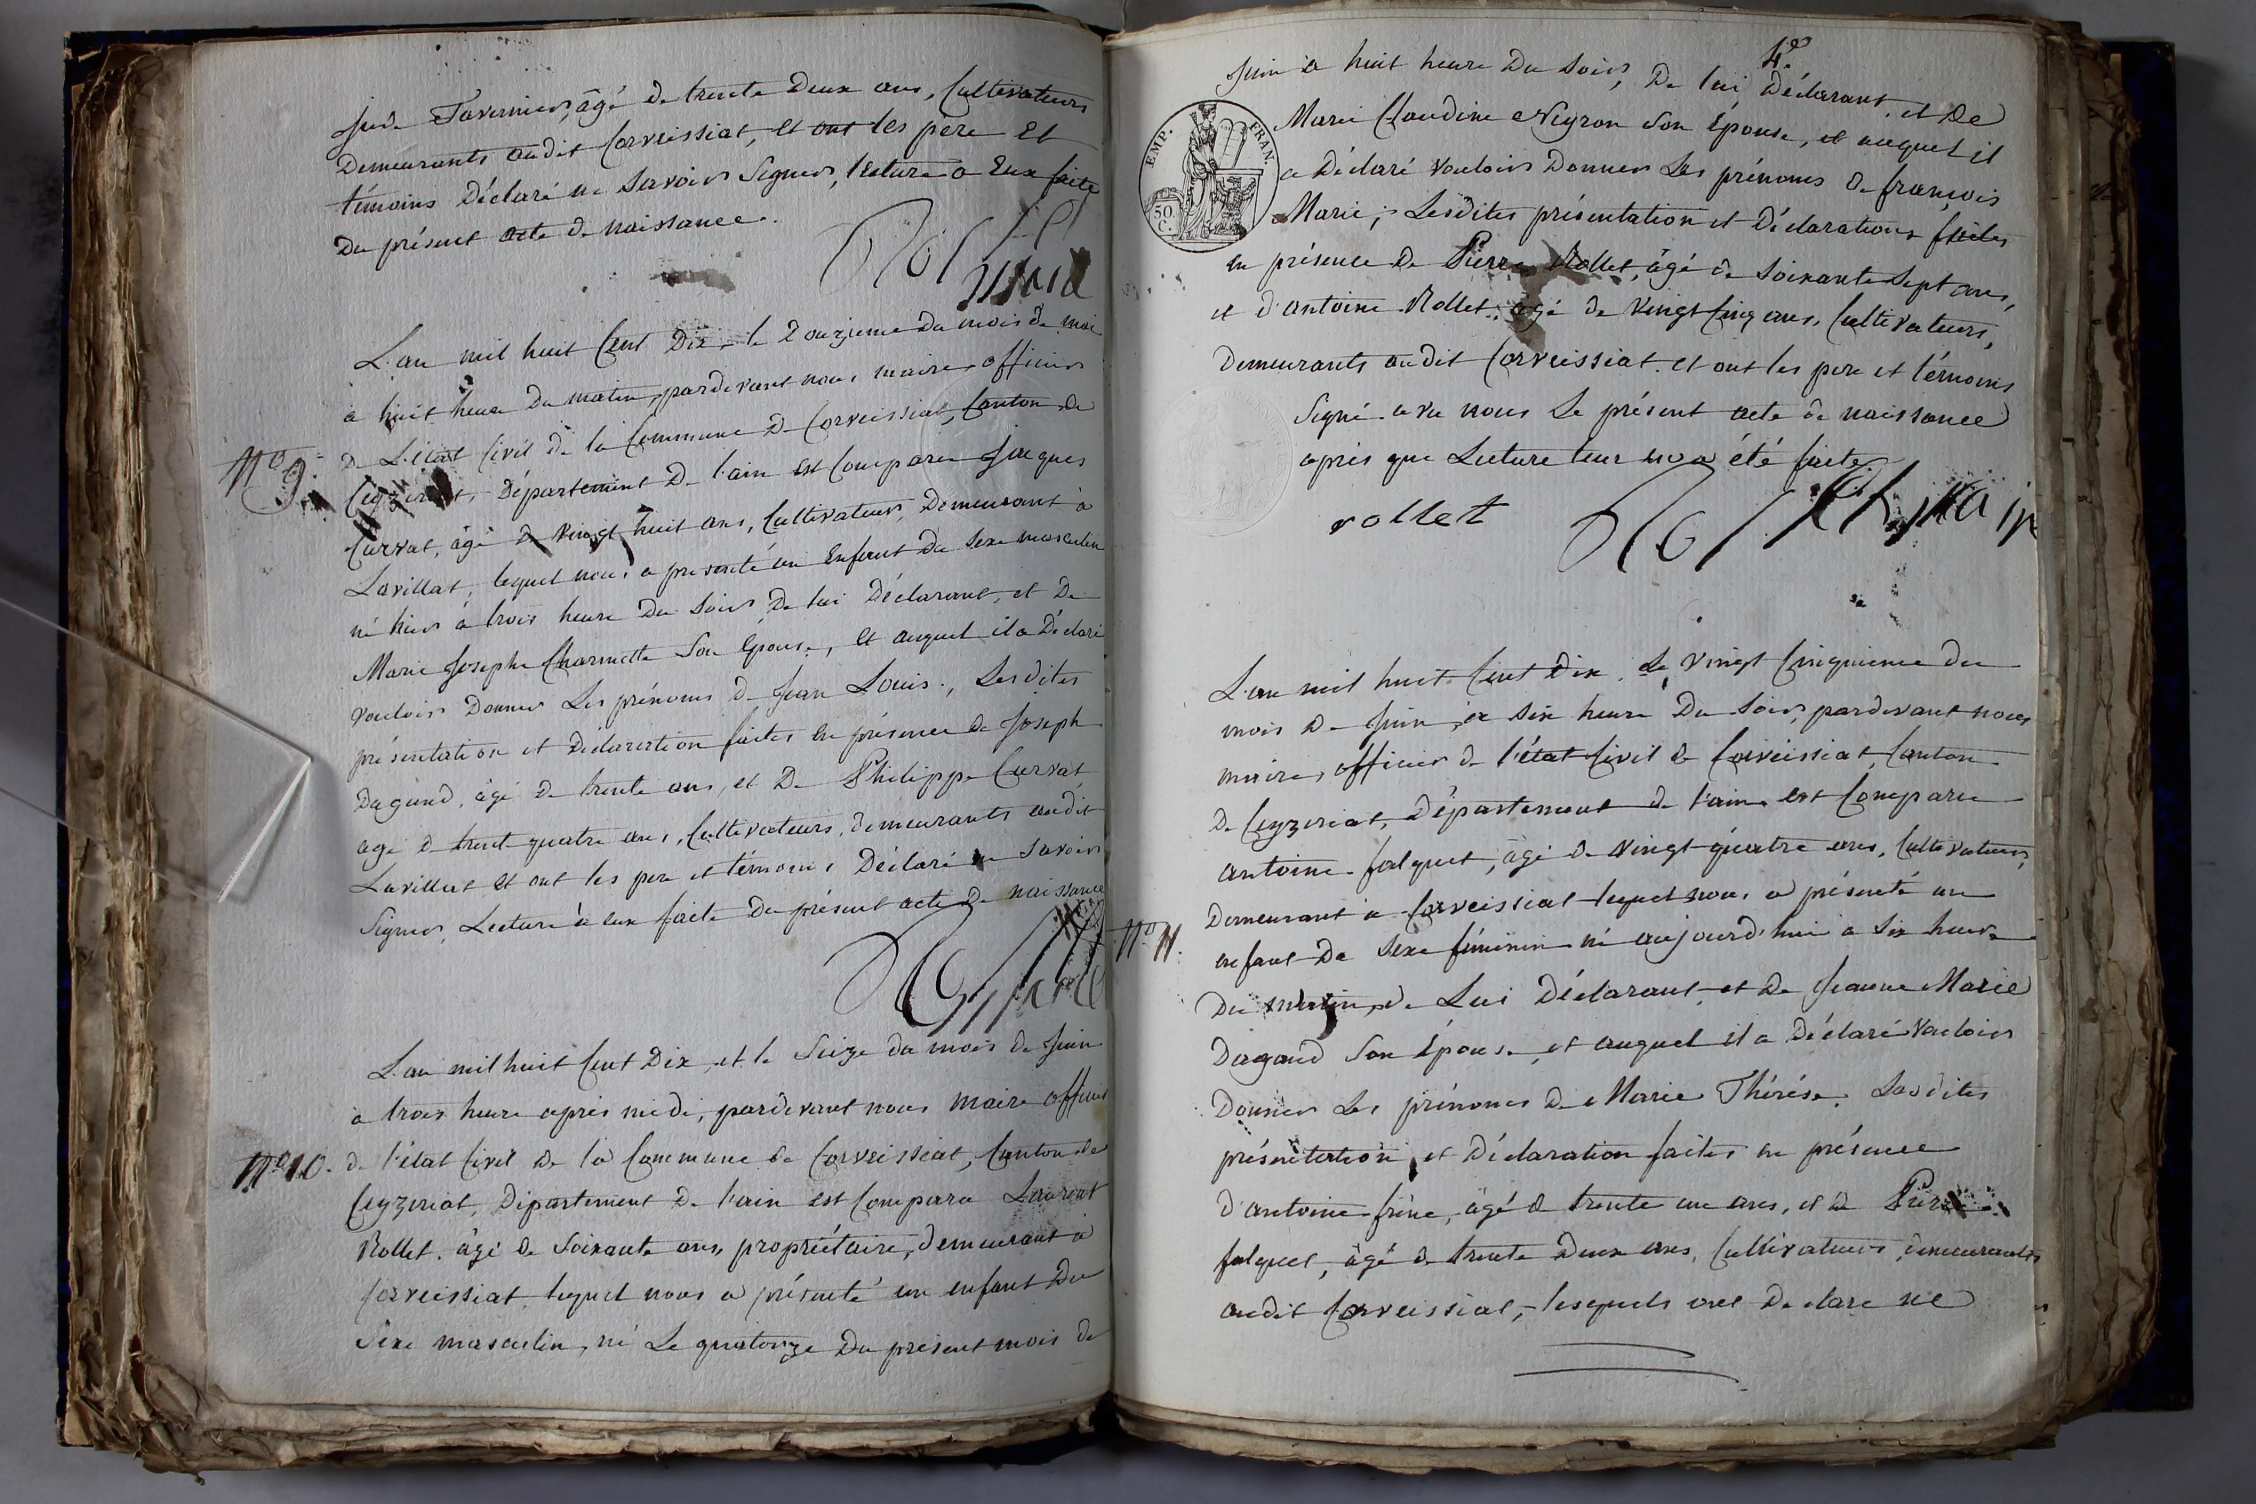 Jude Tavernier, âgé de trente deux ans, Cultivateurs
Demeurants audit Corveissiat, et ont les pere et
témoins Déclaré ne savoir Signer, lecture a Eux faite
Du présent acte de naissance.
maire
L'an mil huit Cent Dix, le Douzieme du mois de mai
a huit heure du matin, pardevant nous maire officier
De L'état Civil de la Commune de Corveissiat, Canton de
Nº 9.
Ceyzeriat, Département De l'ain est Comparu Jacques
Curvat, âgé de vingt huit ans, Cultivateur, Demeurant à
Lavillat, lequel nous a presenté un Enfant du sexe masculin
né hier à trois heure du soir, De lui Déclarant, et De
Marie Josephe Charnette Son Epouse, et auquel il a Déclaré
vouloir Donner Les prénoms de Jean Louis, Lesdites
présentation et Déclaration faites en présence de Joseph
Dagand, âgé de trente ans, et De Philippe Curvat
agé de trent quatre ans, Cultivateurs, demeurants audit
Lavillat et ont les pere et témoins Déclaré ne savoir
Signer, Lecture à eux faite du présent acte de naissance
maire
L'an mil huit Cent Dix, et le Seize du mois de Juin
a trois heure après midi, pardevant nous maire officier
Nº 10.
de l'état Civil de la Commune de Corveissiat, Canton de
Ceyzeriat, Département De l'ain est Comparu Laurent
Rollet, âgé de Soixante ans, propriétaire, demeurant à
Corveissiat lequel nous a présenté un enfant du
Sexe masculin, né Le quatorze Du présent mois de
4.e
Juin a huit heure Du soir, De lui Déclarant, et De
Marie Claudine Neyron son Epouse, et auquel il
a Déclaré vouloir Donner Les prénoms de françois
Marie; Lesdites présentation et Déclarations faites
EMP. FRAN.
50 C.
en présence De Pierre Rollet, âgé de soixante sept ans,
et d'antoine Rollet, âgé de vingt Cinq ans, Cultivateurs,
Demeurants audit Corveissiat. et ont les pere et témoins
Signé avec nous Le présent acte de naissance
après que Lecture leur en a été faite.
rollet
maire
L'an mil huit Cent Dix, Le vingt Cinquieme du
mois De Juin, a six heure Du soir, pardevant nous
maire, officier de l'état Civil de Corveissiat, Canton
De Ceyzeriat, Département de l'ain est Comparu
antoine falquet, âgé de vingt quatre ans, Cultivateur,
Demeurant à Corveissiat lequel nous a présenté un
Nº 11.
enfant Du sexe féminin né aujourd'hui à six heure
Du matin, de Lui Déclarant, et De Jeanne Marie
Dagand Son Epouse, et auquel il a Déclaré vouloir
Donner Les prénoms De Marie Thérése. Lesdites
présentation, et Déclaration faites en présence
d'antoine frêne, âgé de trente un ans, et de Pierre
falquet, âgé de trente deux ans, Cultivateurs, demeurants
audit Corveissiat, lesquels ont Declaré ne